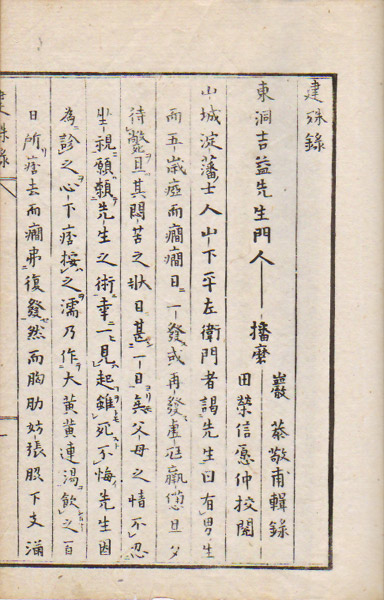 建殊録
東洞吉益先生門人――播磨
巖 恭敬甫輯録
田榮信愿仲校閲
山城淀藩士人山下平左衛門者謁先生曰有男生
而五歳瘂而癇癇日一發或再發虚尫羸憊旦夕
待斃且其悶苦之状日甚一日矣父母之情不忍
坐視願頼先生之術幸一見起雖死不悔先生因
為診之心下痞按之濡乃作大黄黄連湯飲之百
日所痞去而癇弗復發然而胸肋妨張脇下支満
建殊錄